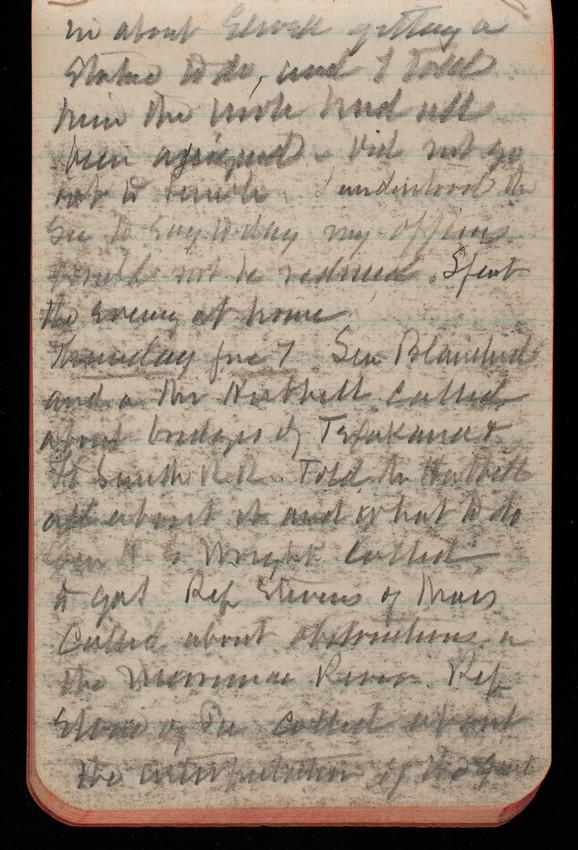 in about Elwell getting a
statue to do, and I told
him the work had all
been assigned. Did not go
out to
I understood the
Sec to say to day my officers
would not be reduced. Spent
the evening at home
Thursday 7 Sen Blanchard
and a Mr Hubbell called
about bridges of Texarkana &
Ft Smith R R. Told Mr Hubbell
all about it and what to do
Gen H G Wright called
to Rep Stevens of Mass
called about obstructions in
the Merrimac River. Rep
Stone of Pa called about
the interpretation of the